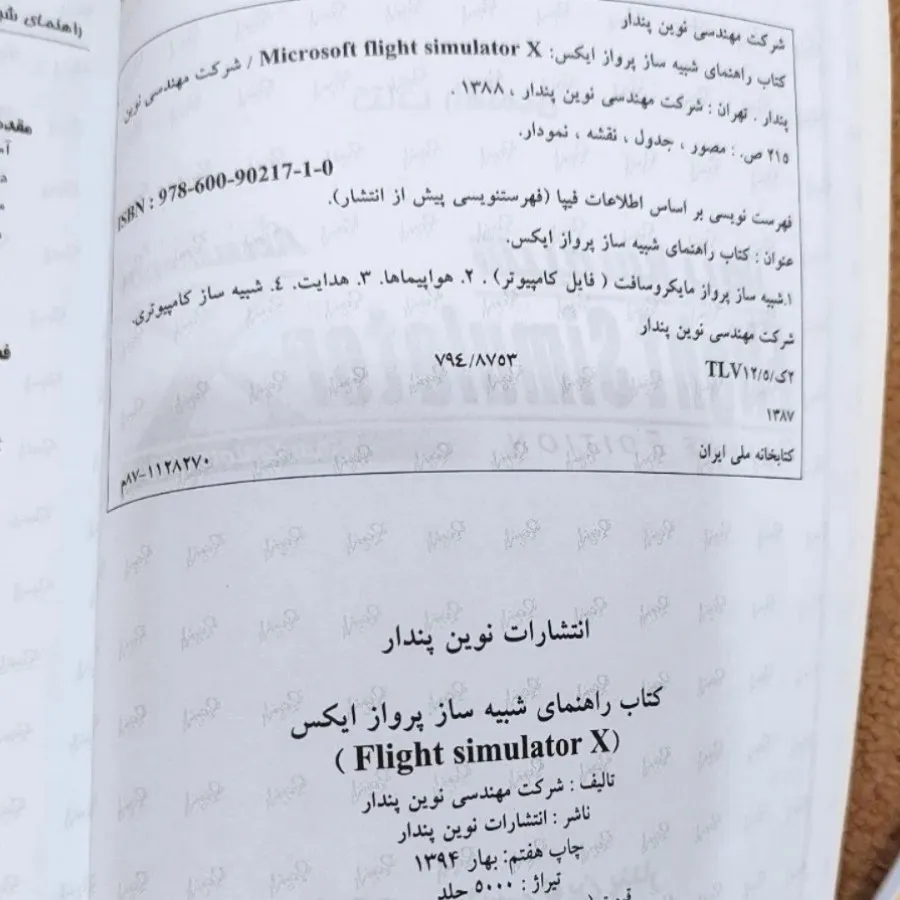 شرکت مهندسی نوین پندار
کتاب راهنمای شبیه ساز پرواز ایکس: Microsoft flight simulator X / شرکت مهندسی نوین
پندار . تهران : شرکت مهندسی نوین پندار ، ۱۳۸۸ .
۲۱۵ ص. : مصور ، جدول ، نقشه ، نمودار.
ISBN : 978-600-90217-1-0
فهرست نویسی بر اساس اطلاعات فیپا (فهرستنویسی پیش از انتشار).
عنوان : کتاب راهنمای شبیه ساز پرواز ایکس.
۱.شبیه ساز پرواز مایکروسافت ( فایل کامپیوتر) . ۲. هواپیماها. ۳. هدایت. ٤. شبیه ساز کامپیوتری.
شرکت مهندسی نوین پندار
۷۹٤/۸۷۵۳
TLV۱۲/۵/ک۲
۱۳۸۷
کتابخانه ملی ایران
۸۷-۱۱۲۸۲۷۰م
انتشارات نوین پندار
کتاب راهنمای شبیه ساز پرواز ایکس
( Flight simulator X)
تالیف : شرکت مهندسی نوین پندار
ناشر : انتشارات نوین پندار
چاپ هفتم: بهار ۱۳۹۴
تیراژ : ۵۰۰۰ جلد
راهنمای